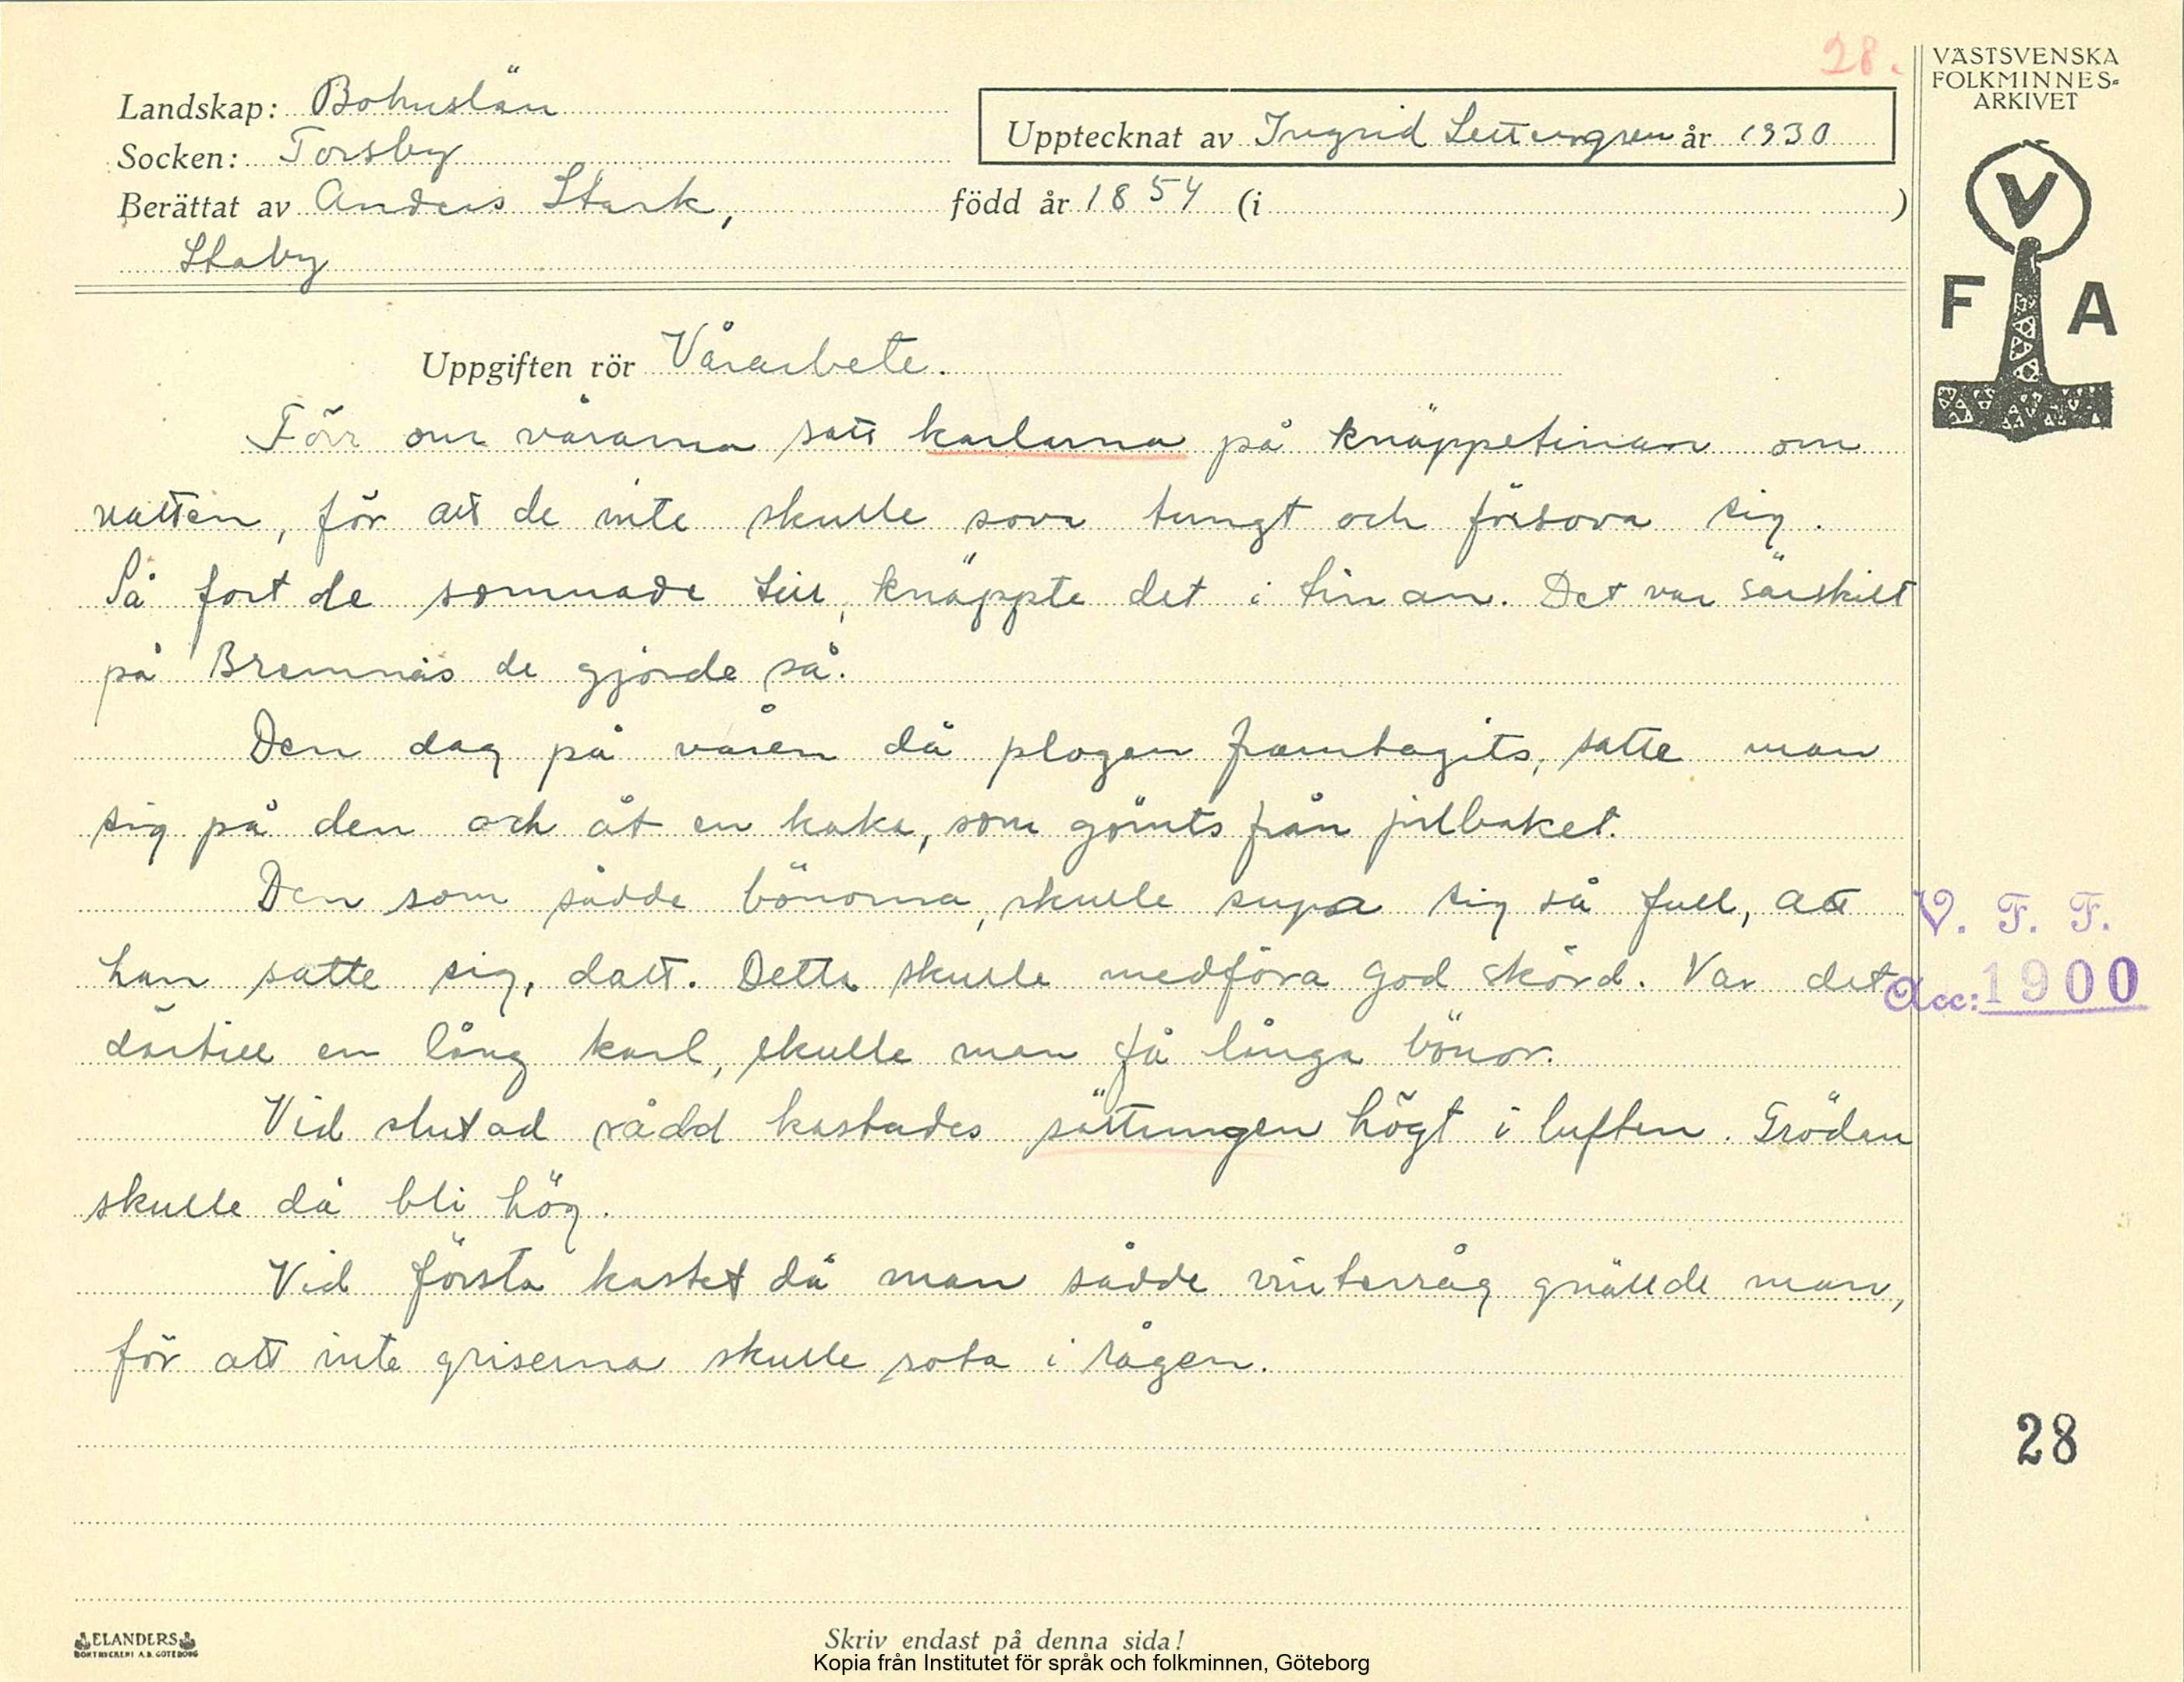 28.
VÄSTSVENSKA
FOLKMINNES-
ARKIVET
Landskap: Bohuslän
Upptecknat av Ingrid Lettergren år 1930
Socken: Torsby
Berättat av Anders Stark, född år 1854 (i )
Staby
V
F A
Uppgiften rör Vårarbete.
Förr om vårarna satt karlarna på knäppetinan om
natten, för att de inte skulle sova tungt och försova sig.
Så fort de somnade till, knäppte det i tinan. Det var särskilt
på Bremnäs de gjorde så.
Den dag på våren då plogen framtagits, satte man
sig på den och åt en kaka, som gömts från julbaket.
Den som sådde bönorna, skulle supa sig så full, att
han satte sig, datt. Detta skulle medföra god skörd. Var det
därtill en lång karl, skulle man få långa bönor.
V. F. F.
Acc: 1900
Vid slutad sådd kastades sättungen högt i luften. Gröden
skulle då bli hög.
Vid första kastet då man sådde vinterråg gnällde man,
för att inte griserna skulle rota i rågen.
28
ELANDERS
BOKTRYCKERI A.B. GÖTEBORG
Skriv endast på denna sida!
Kopia från Institutet för språk och folkminnen, Göteborg